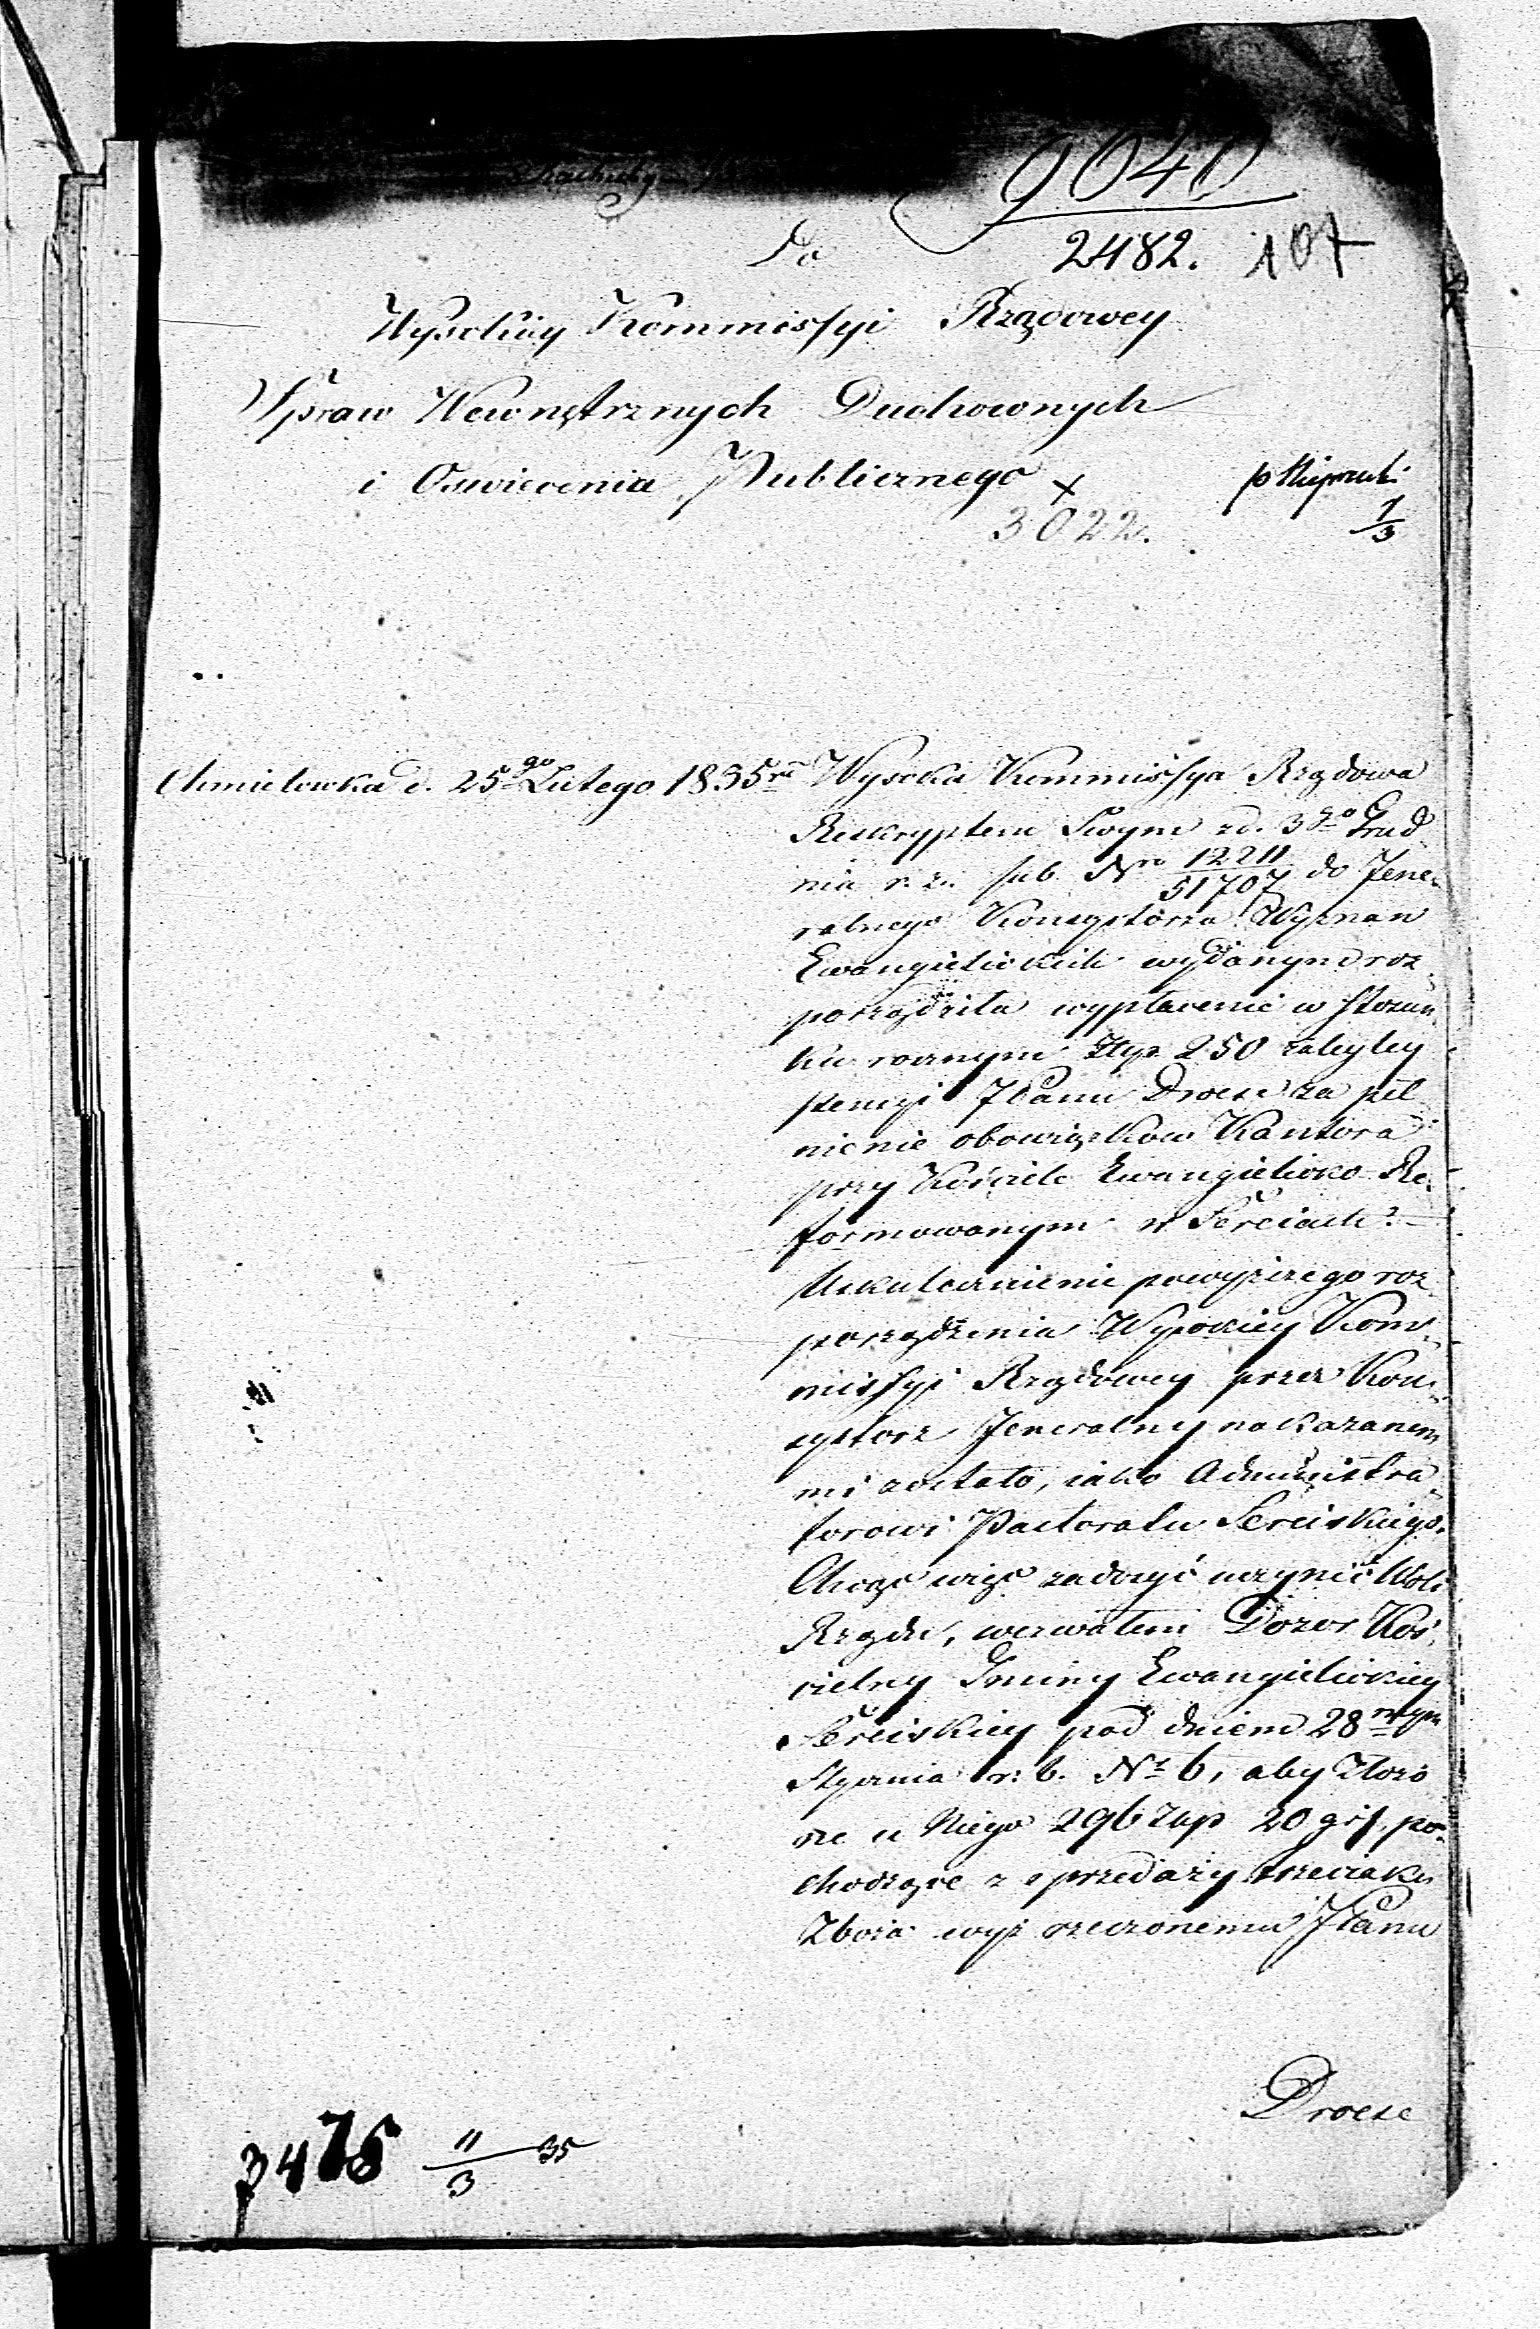 9040
2482. 107
Do
Wysokiey Kommissyi Rządowey
Spraw Wewnętrznych Duchownych
i Oswiecenia Publicznego
3022.
7/3
Chmielowka d. 25go Lutego 1835 r.
Wysoka Kommissya Rządowa
Reskryptem Swym z d. 3go Grud
nia r. z. sub Nro 12211/51707 do Jene-
ralnego Konsystorza Wyznan
Ewangielickich wydanym roz
porządziła wypłacenie w stosun
ku rocznym Złp. 250 zaległey
pensyi JPanu Droese za peł
nienie obowiązkow Kantora
przy Kościele Ewangielicko Re-
formowanym w Sereiach.
Uskutecznienie powyższego roz
porządzenia Wysokiey Kom-
missyi Rządowey przez Kon-
systorz Jeneralny nakazanem
mi zostało, iako Administra-
torowi Pastoratu Sereiskiego.
Chcąc więc zadosyć uczynić Woli
Rządu, wezwałem Dozor Koś
cielny Gminy Ewangielickiey
Sereiskiey pod dniem 28mym
Stycznia r. b. Nr 6, aby złożo
ne u Niego 296 Złp 20 grs. po-
chodzące z sprzedaży trzeciaku
Zboża wyż rzeczonemu JPanu
Droese
3476 11/3 35